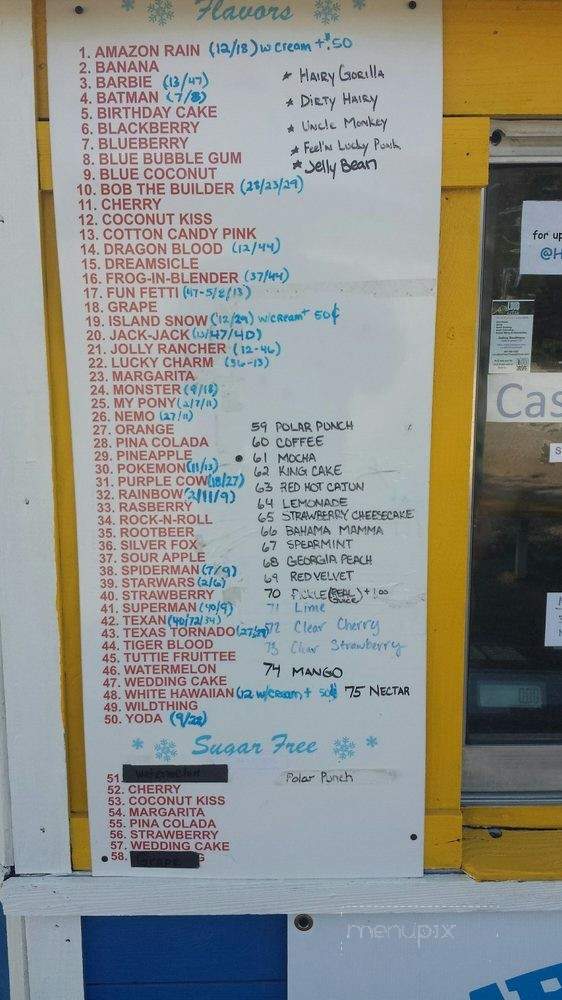 Flavors
1. AMAZON RAIN (12/18) w cream + $.50
2. BANANA
3. BARBIE (13/47)
4. BATMAN (7/8)
5. BIRTHDAY CAKE
6. BLACKBERRY
7. BLUEBERRY
8. BLUE BUBBLE GUM
9. BLUE COCONUT
10. BOB THE BUILDER (28/23/29)
11. CHERRY
12. COCONUT KISS
13. COTTON CANDY PINK
14. DRAGON BLOOD (12/44)
15. DREAMSICLE
16. FROG-IN-BLENDER (37/44)
17. FUN FETTI (47-5/8/13)
18. GRAPE
19. ISLAND SNOW (12/29) w/cream + 50¢
20. JACK-JACK (10/47/40)
21. JOLLY RANCHER (12-46)
22. LUCKY CHARM (36-13)
23. MARGARITA
24. MONSTER (9/18)
25. MY PONY (2/7/11)
26. NEMO (27/11)
27. ORANGE
28. PINA COLADA
29. PINEAPPLE
30. POKEMON (11/13)
31. PURPLE COW (18/27)
32. RAINBOW (2/11/9)
33. RASBERRY
34. ROCK-N-ROLL
35. ROOTBEER
36. SILVER FOX
37. SOUR APPLE
38. SPIDERMAN (7/9)
39. STARWARS (2/6)
40. STRAWBERRY
41. SUPERMAN (40/9)
42. TEXAN (40/72/34)
43. TEXAS TORNADO (27/29)
44. TIGER BLOOD
45. TUTTIE FRUITTEE
46. WATERMELON
47. WEDDING CAKE
48. WHITE HAWAIIAN (12 w/cream + 50¢
49. WILDTHING
50. YODA (9/22)
* HAIRY GORILLA
* DIRTY HAIRY
* UNCLE MONKEY
* Feel'n Lucky Punk
* Jelly Bean
59 POLAR PUNCH
60 COFFEE
61 MOCHA
62 KING CAKE
63 RED HOT CATUN
64 LEMONADE
65 STRAWBERRY CHEESECAKE
66 BAHAMA MAMMA
67 SPEARMINT
68 GEORGIA PEACH
69 RED VELVET
70 PICKLE (REAL JUICE) + 1.00
71 Lime
72 Clear Cherry
73 Clear Strawberry
74 MANGO
75 NECTAR
Sugar Free
51. Watermelon
52. CHERRY
53. COCONUT KISS
54. MARGARITA
55. PINA COLADA
56. STRAWBERRY
57. WEDDING CAKE
58. Grape G
Polar Punch
for up
@H
LOUD
Cas
S
menupix